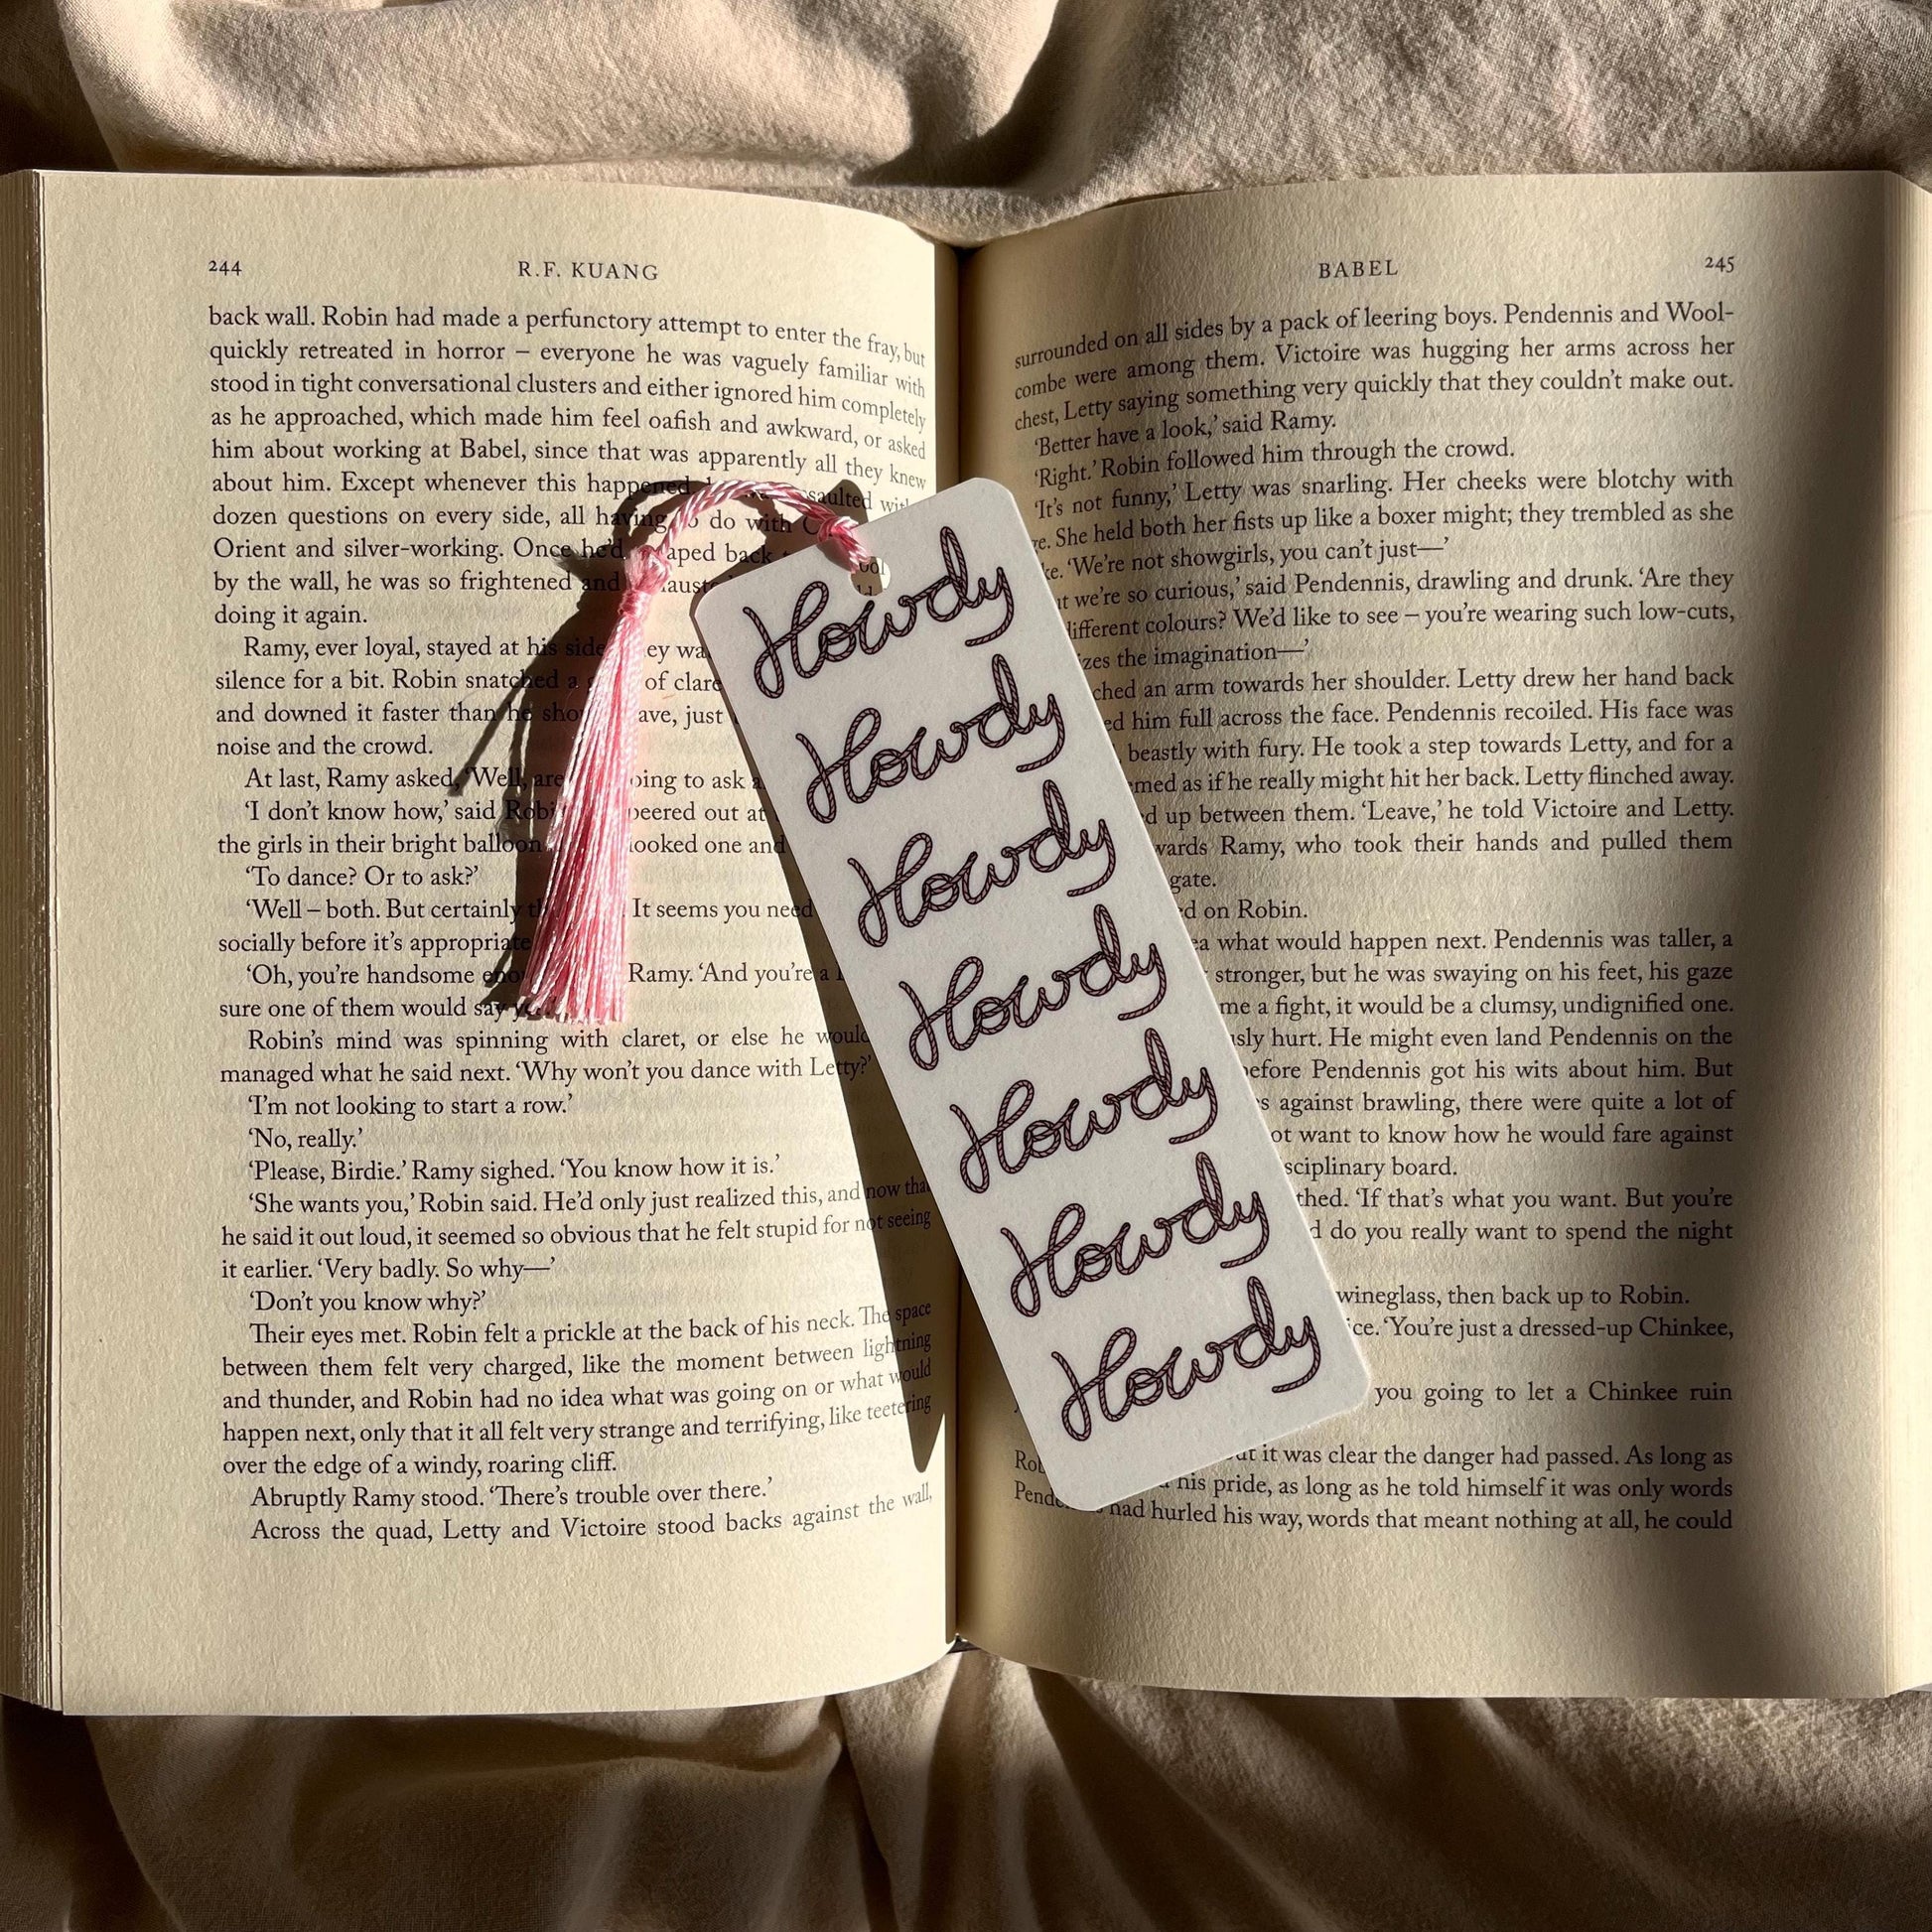 244
R.F. KUANG
back wall. Robin had made a perfunctory attempt to enter the fray, but
quickly retreated in horror – everyone he was vaguely familiar with
stood in tight conversational clusters and either ignored him completely
as he approached, which made him feel oafish and awkward, or asked
him about working at Babel, since that was apparently all they knew
about him. Except whenever this happened
dozen questions on every side, all having to do with
Orient and silver-working. Once he'd back
by the wall, he was so frightened and
doing it again.
Ramy, ever loyal, stayed at his side
silence for a bit. Robin snatched a of
and downed it faster than he just
noise and the crowd.
At last, Ramy asked, 'Well, are to ask
'I don't know how,' said Robin out at
the girls in their bright balloon one and
'To dance? Or to ask?'
'Well – both. But certainly It seems you need
socially before it's appropriate
'Oh, you're handsome Ramy. 'And you're a
sure one of them would say
Robin's mind was spinning with claret, or else he would
managed what he said next. 'Why won't you dance with Letty?'
'I'm not looking to start a row.'
'No, really.'
'Please, Birdie.' Ramy sighed. 'You know how it is.'
'She wants you,' Robin said. He'd only just realized this, and now that
he said it out loud, it seemed so obvious that he felt stupid for not seeing
it earlier. 'Very badly. So why—'
'Don't you know why?'
Their eyes met. Robin felt a prickle at the back of his neck. The space
between them felt very charged, like the moment between lightning
and thunder, and Robin had no idea what was going on or what would
happen next, only that it all felt very strange and terrifying, like teetering
over the edge of a windy, roaring cliff.
Abruptly Ramy stood. 'There's trouble over there.'
Across the quad, Letty and Victoire stood backs against the wall,
Howdy
Howdy
Howdy
Howdy
Howdy
Howdy
Howdy
BABEL
245
surrounded on all sides by a pack of leering boys. Pendennis and Wool-
combe were among them. Victoire was hugging her arms across her
chest, Letty saying something very quickly that they couldn't make out.
'Better have a look,' said Ramy.
'Right.' Robin followed him through the crowd.
'It's not funny,' Letty was snarling. Her cheeks were blotchy with
She held both her fists up like a boxer might; they trembled as she
'We're not showgirls, you can't just—'
we're so curious,' said Pendennis, drawling and drunk. 'Are they
different colours? We'd like to see – you're wearing such low-cuts,
the imagination—'
an arm towards her shoulder. Letty drew her hand back
him full across the face. Pendennis recoiled. His face was
beastly with fury. He took a step towards Letty, and for a
as if he really might hit her back. Letty flinched away.
up between them. 'Leave,' he told Victoire and Letty.
Ramy, who took their hands and pulled them
gate.
on Robin.
what would happen next. Pendennis was taller, a
stronger, but he was swaying on his feet, his gaze
me a fight, it would be a clumsy, undignified one.
hurt. He might even land Pendennis on the
before Pendennis got his wits about him. But
against brawling, there were quite a lot of
want to know how he would fare against
board.
'If that's what you want. But you're
do you really want to spend the night
wineglass, then back up to Robin.
'You're just a dressed-up Chinkee,
you going to let a Chinkee ruin
it was clear the danger had passed. As long as
his pride, as long as he told himself it was only words
had hurled his way, words that meant nothing at all, he could